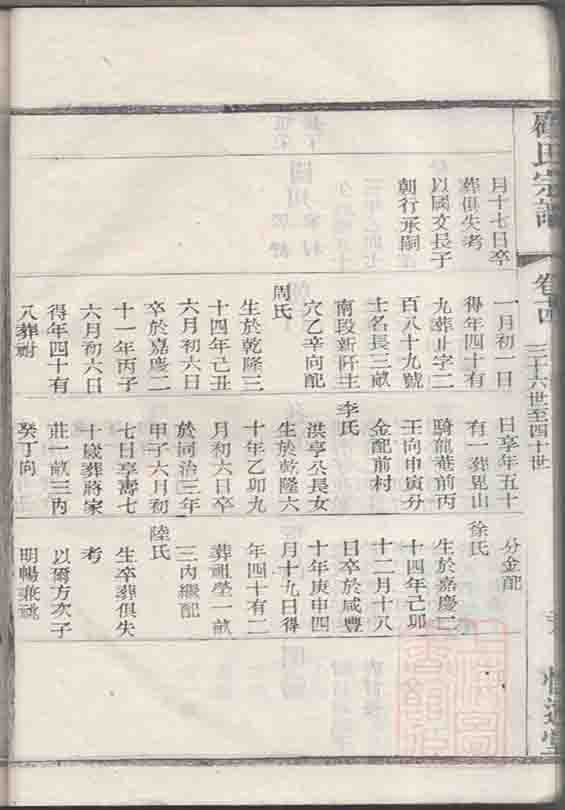 氏宗譜
卷十四
三十六世至四十世
月十七日卒
葬俱失考
以國文長子
朝行承嗣
一月初一日
得年四十有
九葬止字二
百八十九號
士名長三畝
南段新阡主
穴乙辛向配
周氏
生於乾隆三
十四年己丑
六月初六日
卒於嘉慶二
十一年丙子
六月初六日
得年四十有
八葬祔
日享年五十
有一葬崑山
騎龍菴前丙
壬向申寅分
金配前村
李氏
洪亨公長女
生於乾隆六
十年乙卯九
月初六日卒
於同治三年
甲子六月初
七日享壽七
十歲葬將家
莊一畝三內
癸丁向
分金配
徐氏
生於嘉慶二
十四年己卯
十二月十八
日卒於咸豐
十年庚申四
月十九日得
年四十有二
葬祖塋一畝
三內繼配
陸氏
生卒葬俱失
考
以爾方次子
明暢兼祧